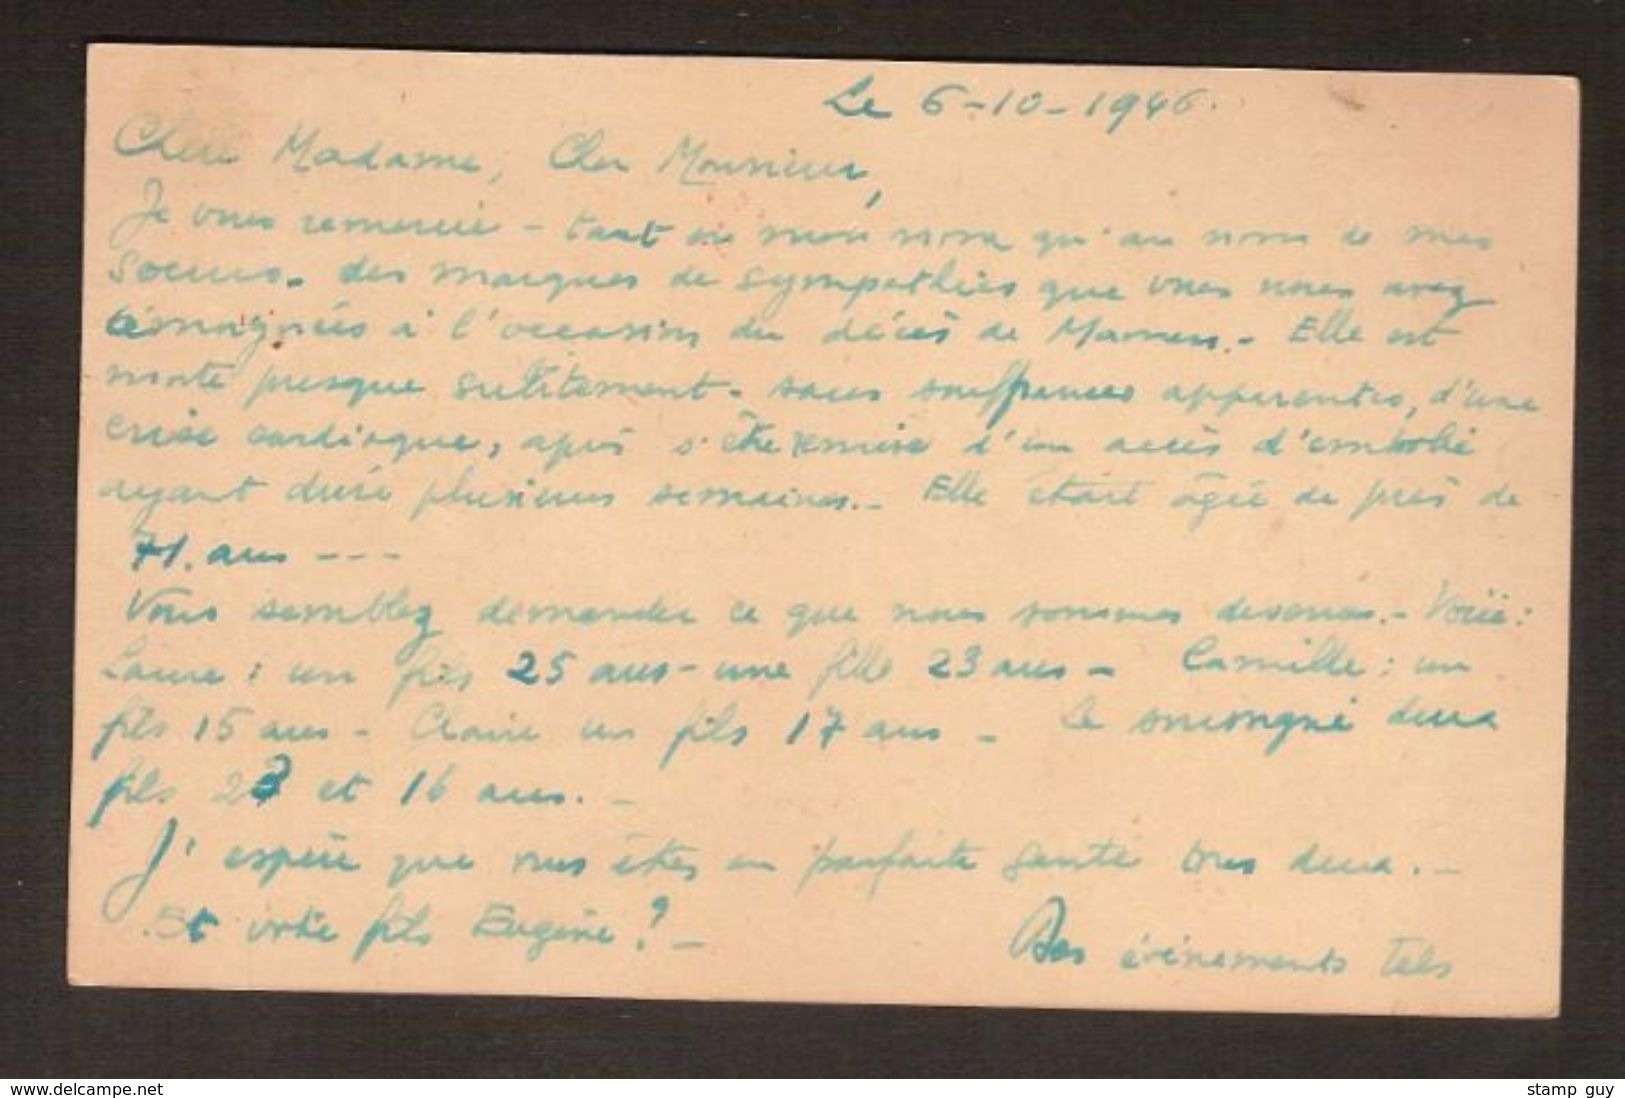 Le 6-10-1946.
Chère Madame, Cher Monsieur,
Je vous remercie - tant en mon nom qu'au nom de mes
soeurs - des marques de sympathies que vous nous avez
témoignées à l'occasion du décès de Maman. - Elle est
morte presque subitement - sans souffrances apparentes, d'une
crise cardiaque, après s'être remise d'un accès d'embolie
ayant duré plusieurs semaines. - Elle était âgée de près de
71. ans ---
Vous semblez demander ce que nous sommes devenus. - Voici :
Laure : un fils 25 ans - une fille 23 ans - Camille : un
fils 15 ans - Claire un fils 17 ans - Le soussigné deux
fils 23 et 16 ans. -
J'espère que vous êtes en parfaite santé tous deux. -
Et votre fils Eugène ? - Des événements tels
www.delcampe.net
stamp guy